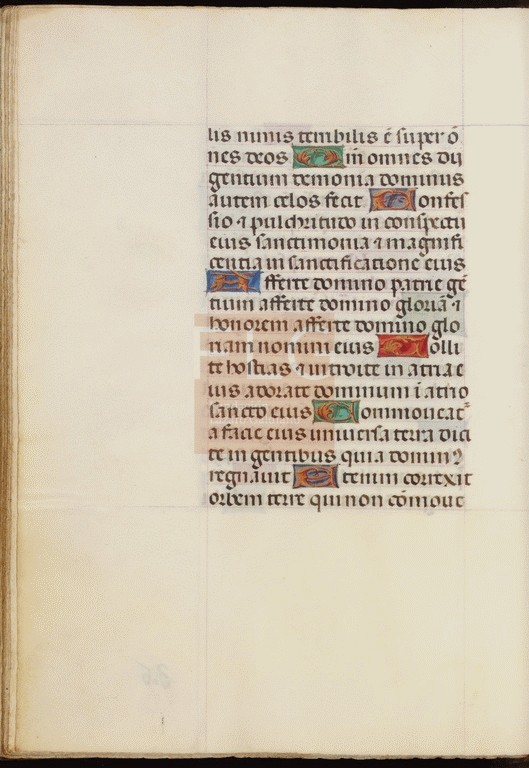 lis nimis terribilis ē super ō
nes deos Qm̄ omnes dii
gentium demonia dominus
autem celos fecit Confes
sio ⁊ pulchritudo in conspectu
eius sanctimonia ⁊ magnifi
centia in sanctificatione eius
Afferte domino patrie gē
tium afferte domino gloriā ⁊
honorem afferte domino glo
riam nomini eius Tolli
te hostias ⁊ introite in atria e
ius adorate dominum ī atrio
sancto eius Commoueat᷑
a facie eius uniuersa terra dici
te in gentibus quia dominꝰ
regnauit Etenim correxit
orbem terre qui non cōmoue